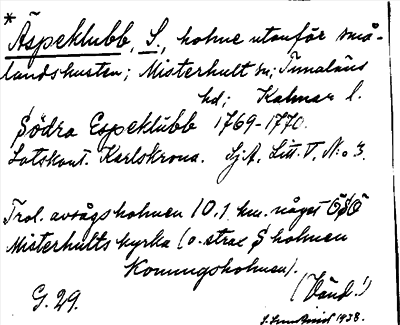 * Äspeklubb, S., holme utanför små-
landskusten; Misterhult sn; Tunaläns
hd; Kalmar l.
Södra Espeklubb 1769-1770.
Lotskont. Karlskrona. Sj.A. Litt. V, N:o 3.
Trol. avsågs holmen 10,1 km. något ÖSÖ
Misterhults kyrka (o. strax S holmen
Konungsholmen).
(Vänd!)
G. 29.
1938.